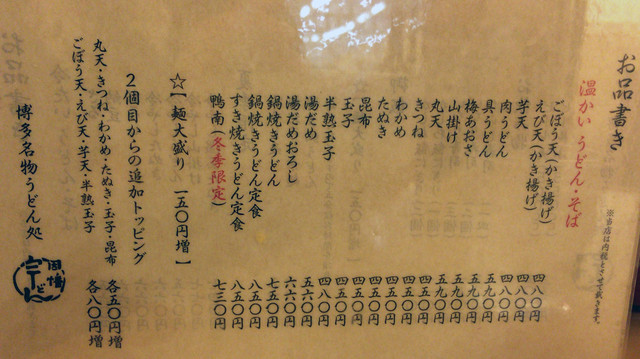 お品書き
※当店は内税とさせて頂きます。
温かいうどん・そば
ごぼう天(かき揚げ) 四八〇円
えび天(かき揚げ) 四八〇円
芋天 四八〇円
肉うどん 五九〇円
具うどん 五九〇円
梅あおさ 五九〇円
山掛け 五九〇円
丸天 四五〇円
きつね 四五〇円
わかめ 四五〇円
たぬき 四五〇円
昆布 四五〇円
玉子 四五〇円
半熟玉子 四八〇円
湯だめ 五六〇円
湯だめおろし 六六〇円
鍋焼きうどん 七五〇円
鍋焼きうどん定食 八五〇円
すき焼きうどん定食 八五〇円
鴨南(冬季限定) 七三〇円
☆【麺大盛り 一五〇円増】
2個目からの追加トッピング
丸天・きつね・わかめ・たぬき・玉子・昆布 各五〇円増
ごぼう天・えび天・芋天・半熟玉子 各八〇円増
博多名物うどん処